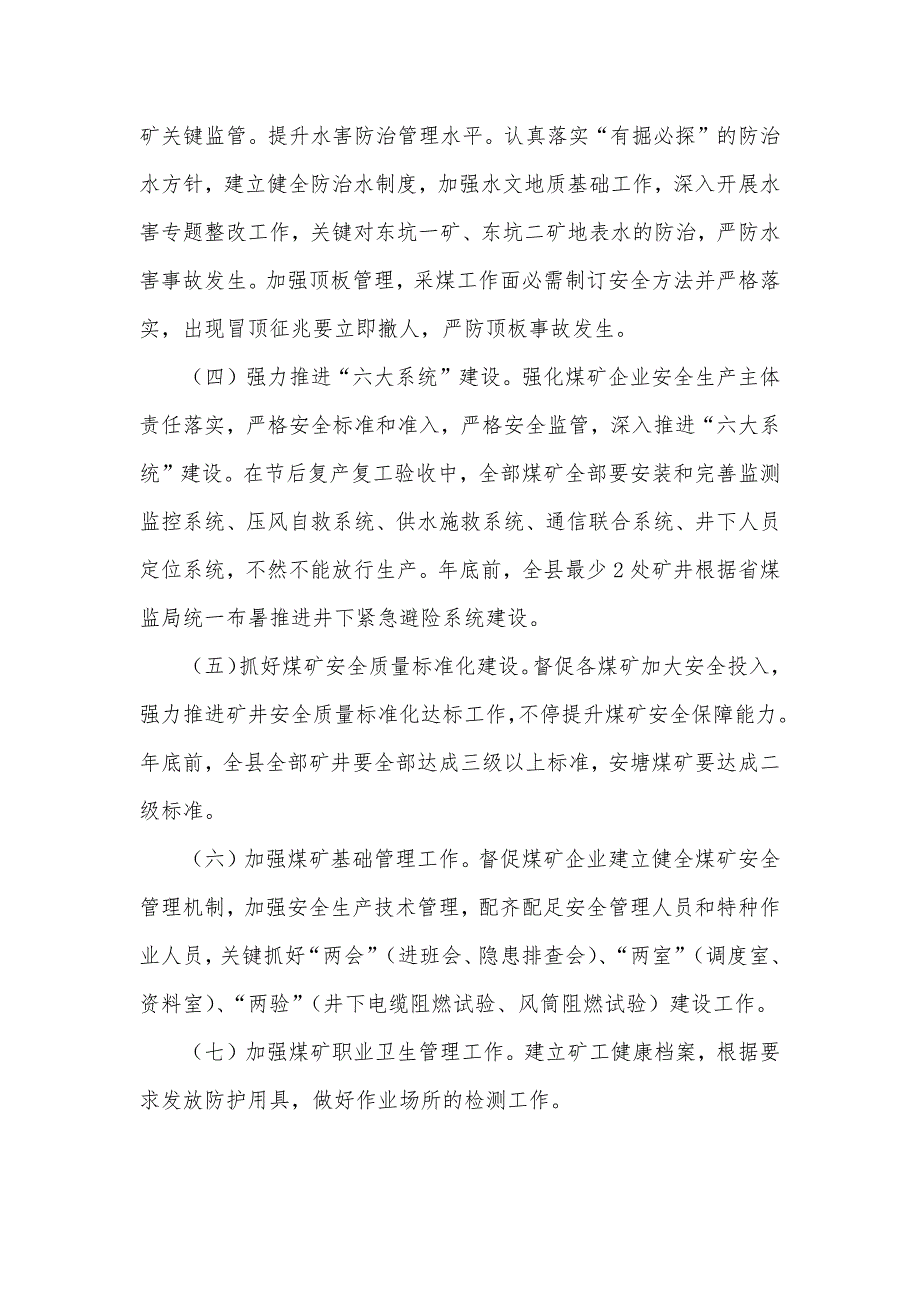 矿关键监管。提升水害防治管理水平。认真落实“有掘必探”的防治
水方针，建立健全防治水制度，加强水文地质基础工作，深入开展水
害专题整改工作，关键对东坑一矿、东坑二矿地表水的防治，严防水
害事故发生。加强顶板管理，采煤工作面必需制订安全方法并严格落
实，出现冒顶征兆要立即撤人，严防顶板事故发生。
（四）强力推进“六大系统”建设。强化煤矿企业安全生产主体
责任落实，严格安全标准和准入，严格安全监管，深入推进“六大系
统”建设。在节后复产复工验收中，全部煤矿全部要安装和完善监测
监控系统、压风自救系统、供水施救系统、通信联合系统、井下人员
定位系统，不然不能放行生产。年底前，全县最少2处矿井根据省煤
监局统一布暑推进井下紧急避险系统建设。
（五）抓好煤矿安全质量标准化建设。督促各煤矿加大安全投入，
强力推进矿井安全质量标准化达标工作，不停提升煤矿安全保障能力。
年底前，全县全部矿井要全部达成三级以上标准，安塘煤矿要达成二
级标准。
（六）加强煤矿基础管理工作。督促煤矿企业建立健全煤矿安全
管理机制，加强安全生产技术管理，配齐配足安全管理人员和特种作
业人员，关键抓好“两会”（进班会、隐患排查会）、“两室”（调度室、
资料室）、“两验”（井下电缆阻燃试验、风筒阻燃试验）建设工作。
（七）加强煤矿职业卫生管理工作。建立矿工健康档案，根据要
求发放防护用具，做好作业场所的检测工作。